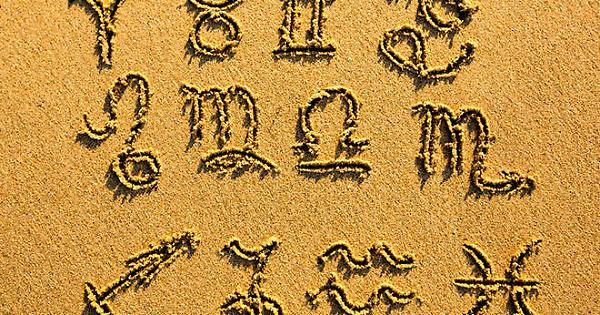 ♈ ♉ ♊ ♋
♌ ♍ ♎ ♏
♐ ♑ ♒ ♓